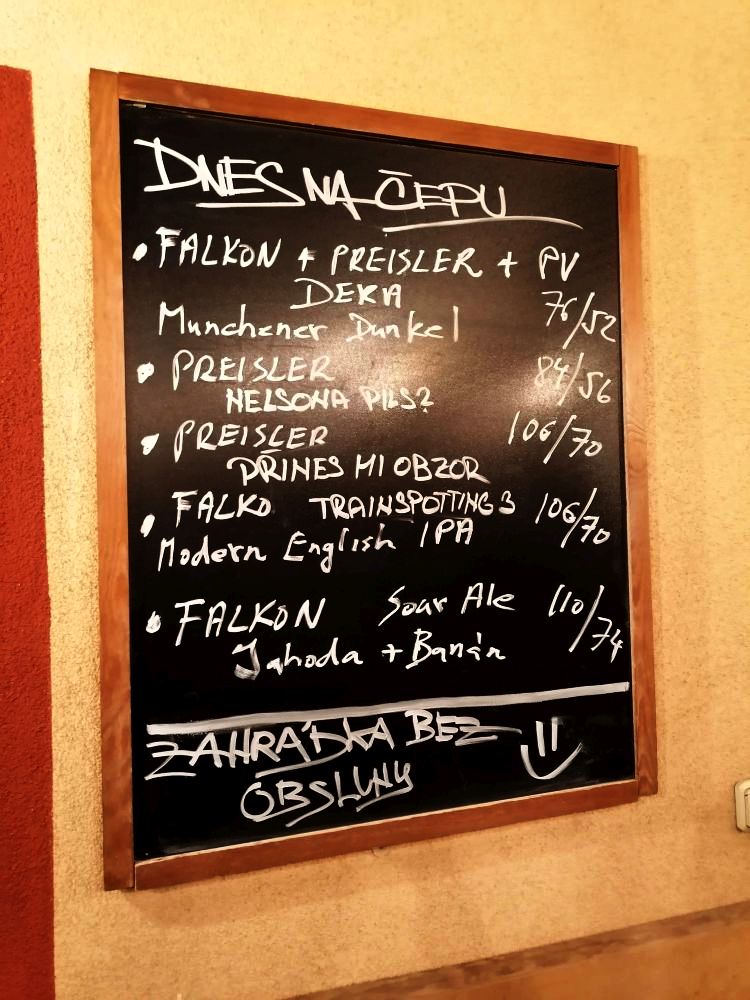 DNES NA ČEPU
• FALKON + PREISLER + PV
DEKA
Munchener Dunkel 76/52
• PREISLER 84/56
NELSONA PILS?
• PREISLER 106/70
PŘINES MI OBZOR
• FALKO TRAINSPOTTING 3 106/70
Modern English IPA
• FALKON Sour Ale 110/74
Jahoda + Banán
ZAHRÁDKA BEZ
OBSLUHY